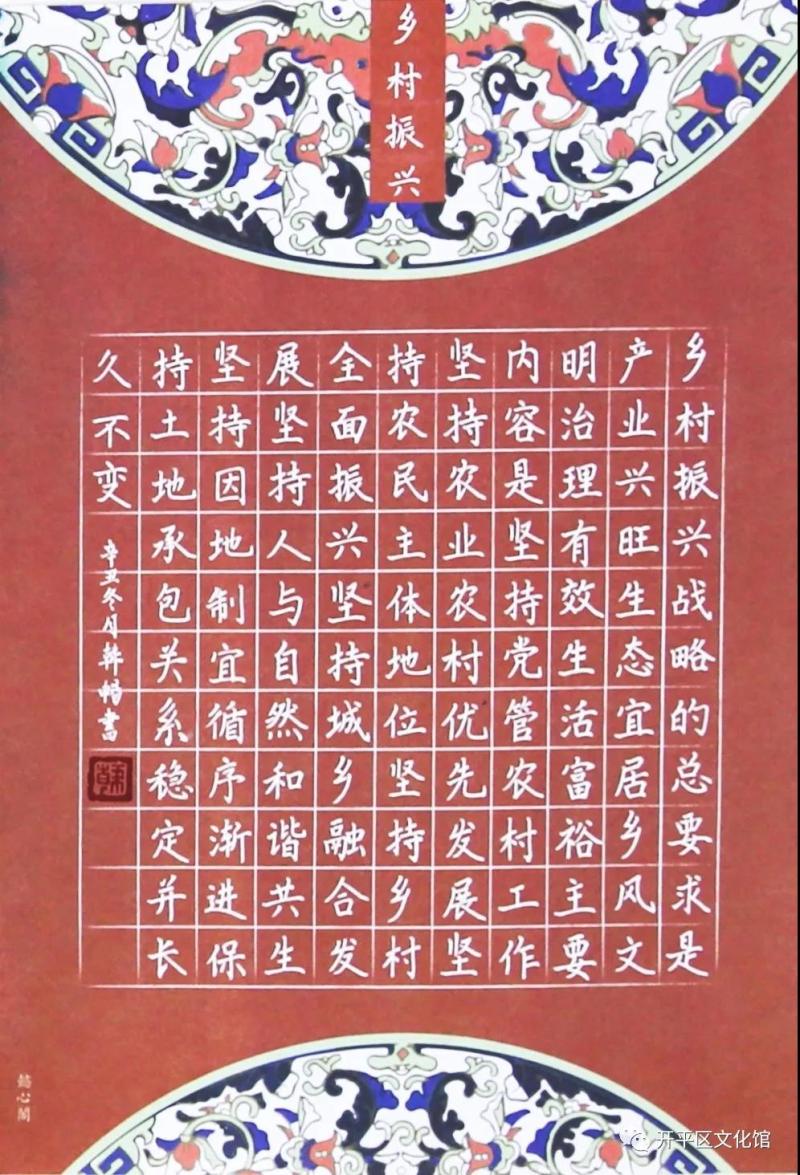 乡村振兴
乡村振兴战略的总要求是
产业兴旺生态宜居乡风文
明治理有效生活富裕主要
内容是坚持党管农村工作
坚持农业农村优先发展坚
持农民主体地位坚持乡村
全面振兴坚持城乡融合发
展坚持人与自然和谐共生
坚持因地制宜循序渐进保
持土地承包关系稳定并长
久不变
辛丑冬月韩畅书
懿心阁
开平区文化馆